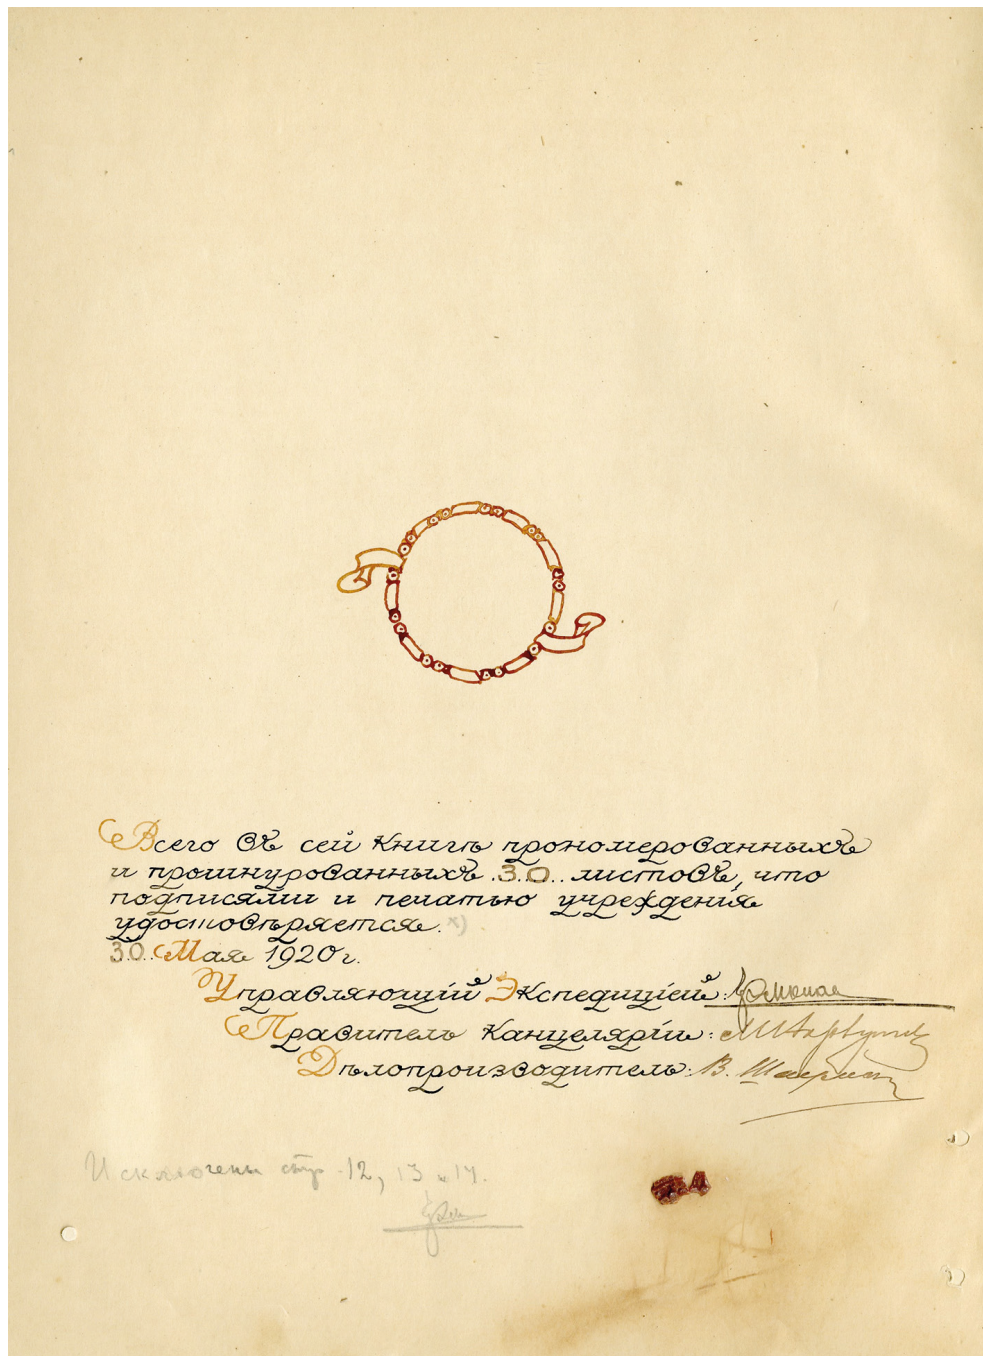 Всего въ сей Книгѣ прономерованныхъ
и прошнурованныхъ .30.. листовъ, что
подписями и печатью учрежденія
удостовѣряется. х)
30. Мая 1920 г.
Управляющій Экспедиціей:
Правитель Канцеляріи:
Дѣлопроизводитель: В.
Исключены стр. 12, 13 и 14.